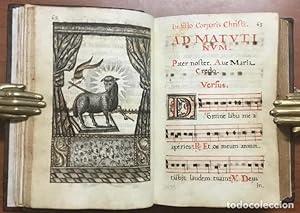 In festo Corporis Christi.
63
AD MATVTI
NVM.
Pater noster. Aue Maria.
Credo.
Versus.
Domine labia mea
aperies. R. Et os meum annun
tiabit laudem tuam. V. Deus
in.
todocoleccion.net